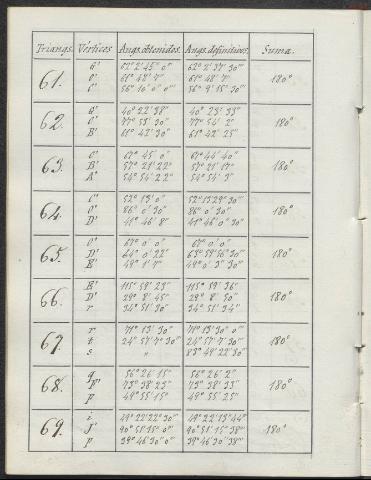 Triangs. Vértices Angs. obtenidos. Angs. definitivos. Suma.
61. G' 62° 2' 45'' 0''' 62° 2' 37'' 30''' 180°
C' 61° 48' 7'' 61° 48' 7''
56° 10' 0'' 0''' 56° 9' 15'' 30'''
62. G' 40° 22' 38'' 40° 23' 33'' 180°
C' 77° 53' 30'' 77° 54' 2''
B' 61° 42' 30'' 61° 42' 25''
63. C' 67° 45' 0'' 67° 44' 40'' 180°
B' 57° 21' 22'' 57° 21' 17''
A' 54° 54' 22'' 54° 54' 3''
64. C'' 52° 13' 0''
0'' 86° 0' 30'' 86° 0' 30'' 180°
D' 41° 46' 8'' 41° 46' 0'' 30'''
65. 0' 67° 0' 0'' 67° 0' 0''
D' 64° 0' 22'' 63° 59' 56'' 30''' 180°
E' 49° 1' 7'' 49° 0' 3'' 30'''
66. E' 115° 59' 23'' 115° 59' 36''
D' 29° 8' 45'' 29° 8' 50'' 180°
r 34° 51' 30'' 34° 51' 34''
67. r 71° 13' 30'' 71° 13' 30'' 0'''
t 24° 57' 7'' 30''' 24° 57' 7'' 30''' 180°
s " 83° 49' 22'' 30'''
68. q 56° 26' 15'' 56° 26' 2''
F' 73° 38' 23'' 73° 38' 33'' 180°
p 49° 55' 15'' 49° 55' 25''
69. i 49° 22' 22'' 30''' 49° 22' 13'' 44'''
J' 90° 51' 15'' 0''' 90° 51' 15'' 38''' 180°
p 39° 46' 30'' 0''' 39° 46' 30'' 38'''